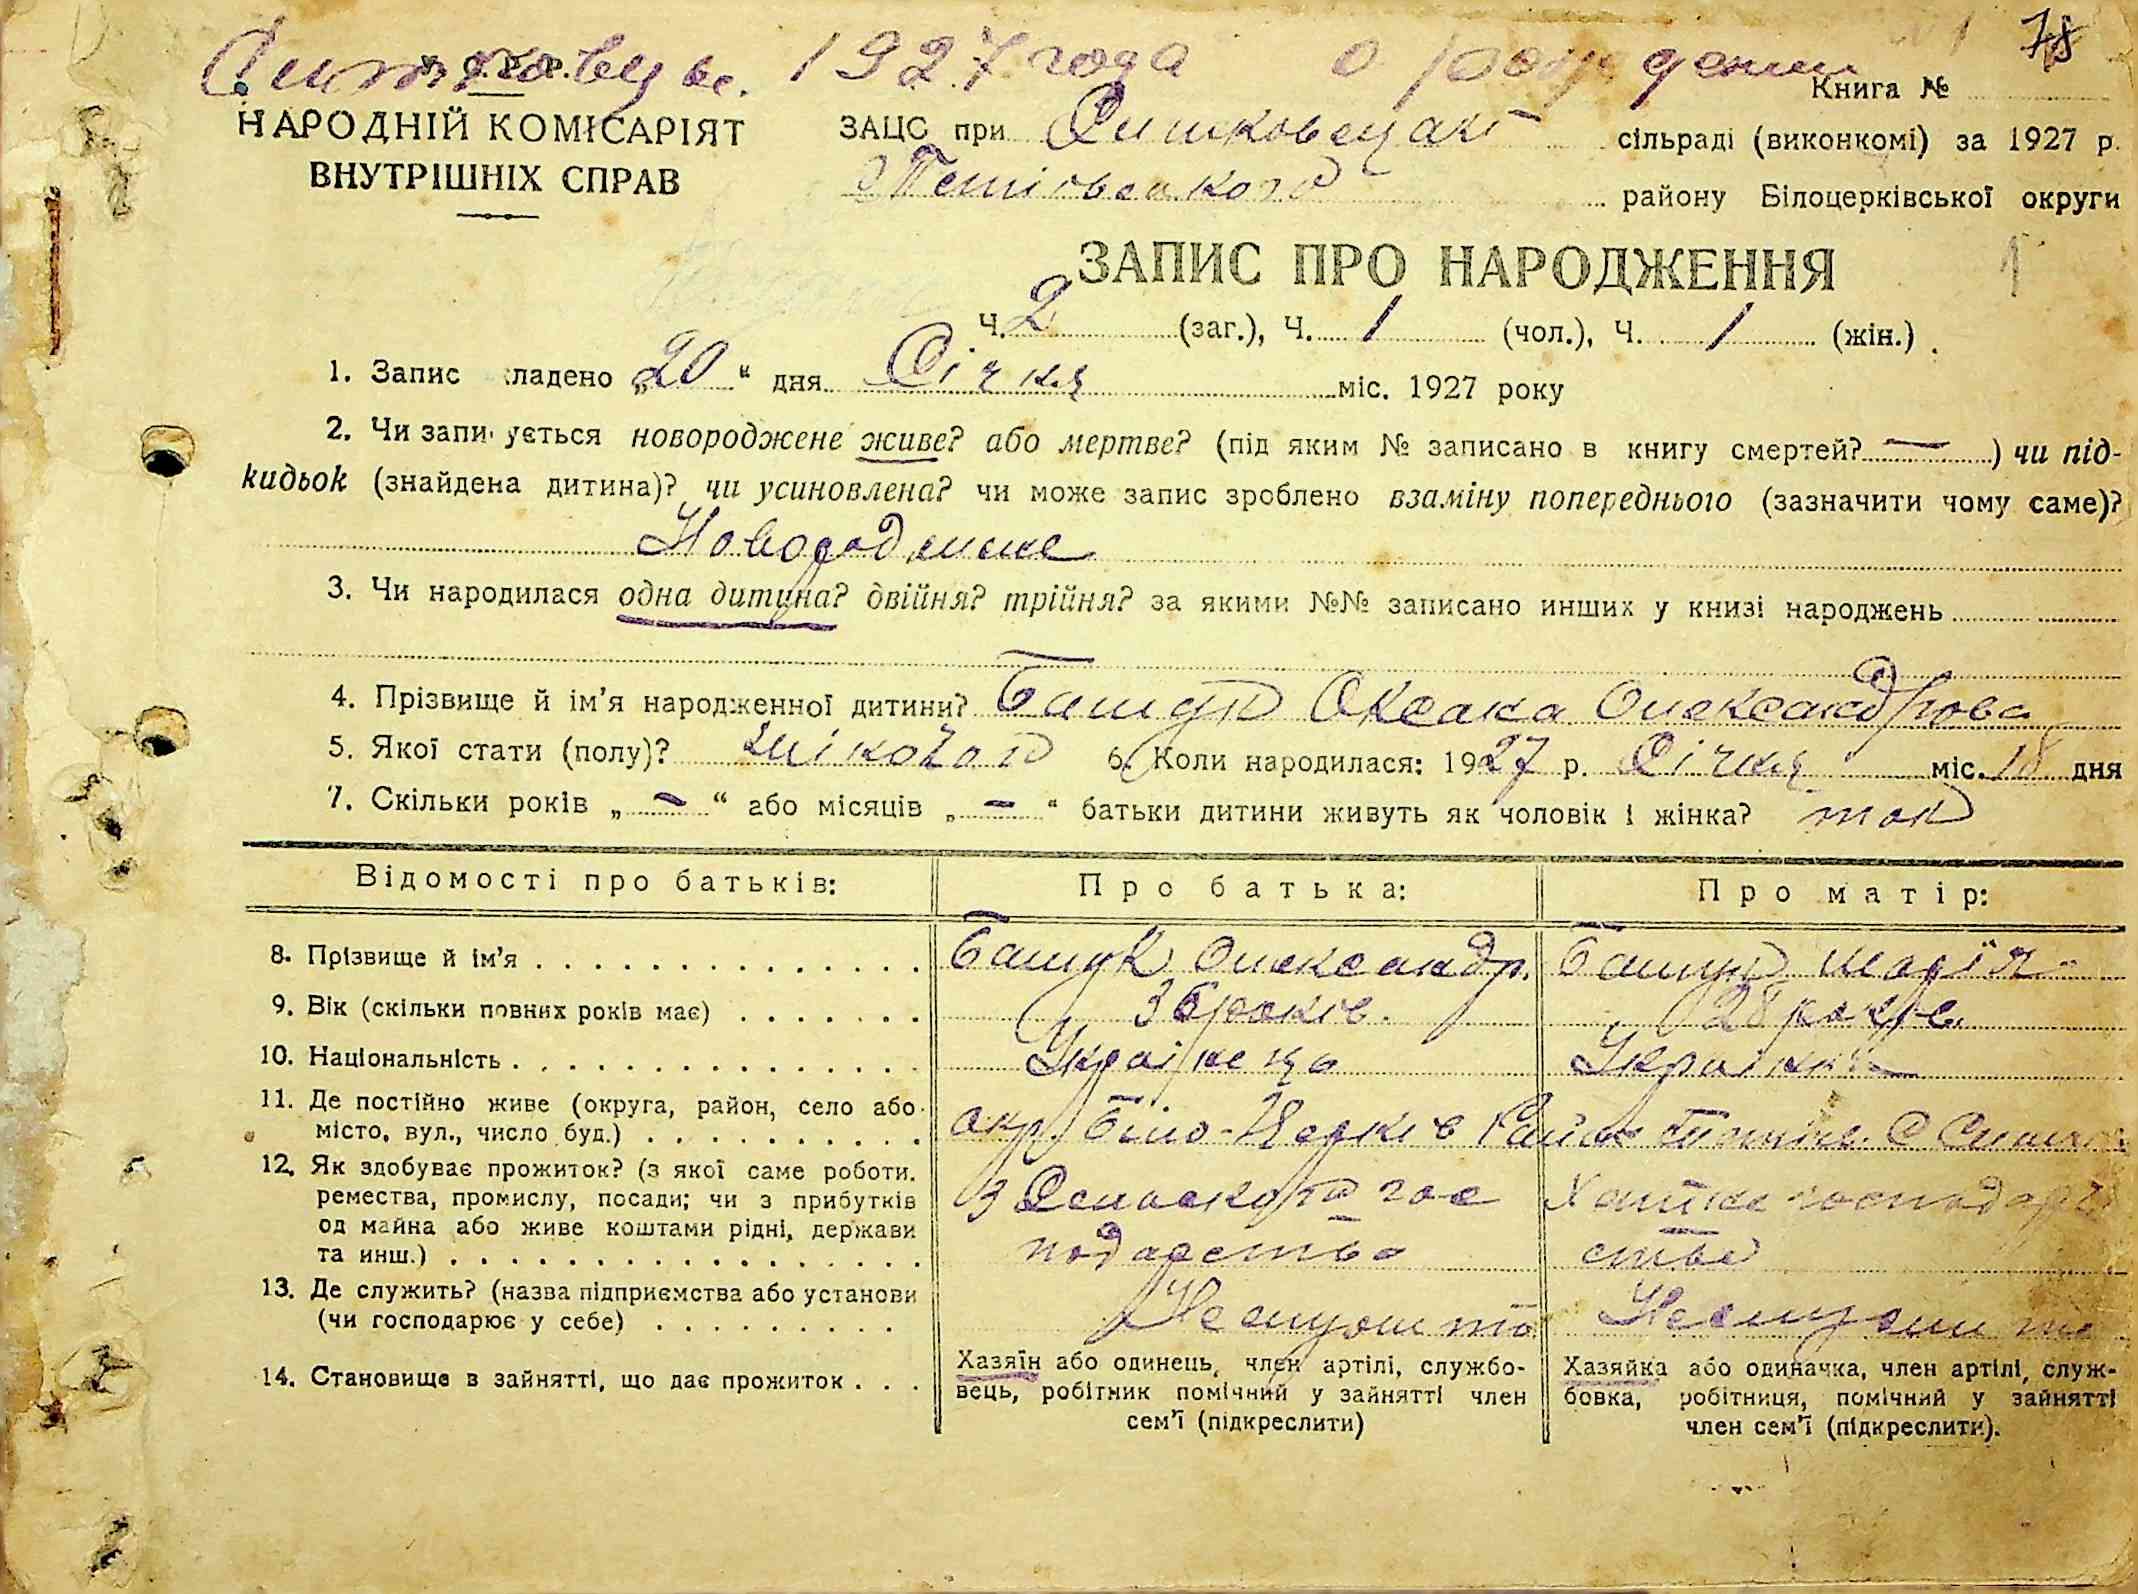 1927 года о рождении 78
У.С.Р.Р.
Книга №
НАРОДНІЙ КОМІСАРІЯТ
ВНУТРІШНІХ СПРАВ
ЗАЦС при сільраді (виконкомі) за 1927 р.
району Білоцерківської округи
ЗАПИС ПРО НАРОДЖЕННЯ
Ч. 2 (заг.), Ч. 1 (чол.), Ч. 1 (жін.)
1. Запис кладено „20“ дня Січня міс. 1927 року
2. Чи запи ується новороджене живе? або мертве? (під яким № записано в книгу смертей? — ) чи під-
кидьок (знайдена дитина)? чи усиновлена? чи може запис зроблено взаміну попереднього (зазначити чому саме)?
3. Чи народилася одна дитина? двійня? трійня? за якими №№ записано инших у книзі народжень
4. Прізвище й ім'я народженної дитини? Оксана Олександрова
5. Якої стати (полу)? жіночого 6. Коли народилася: 1927 р. Січня міс. 18 дня
7. Скільки років „ — “ або місяців „ — “ батьки дитини живуть як чоловік і жінка?
Відомості про батьків: Про батька: Про матір:
8. Прізвище й ім'я Башук Олександр. Марія
9. Вік (скільки повних років має) 36 років. 28 років.
10. Національність Українець Українка
11. Де постійно живе (округа, район, село або
місто, вул., число буд.) окр. Біло-Церків Район
12. Як здобуває прожиток? (з якої саме роботи.
ремества, промислу, посади; чи з прибутків
од майна або живе коштами рідні, держави
та инш.)
З гос
подарства
Хатнє господар
ство
13. Де служить? (назва підприємства або установи
(чи господарює у себе)
14. Становище в зайнятті, що дає прожиток
Хазяїн або одинець, член артілі, службо-
вець, робітник помічний у зайнятті член
сем'ї (підкреслити)
Хазяйка або одиначка, член артілі, служ-
бовка, робітниця, помічний у зайнятті
член сем'ї (підкреслити).